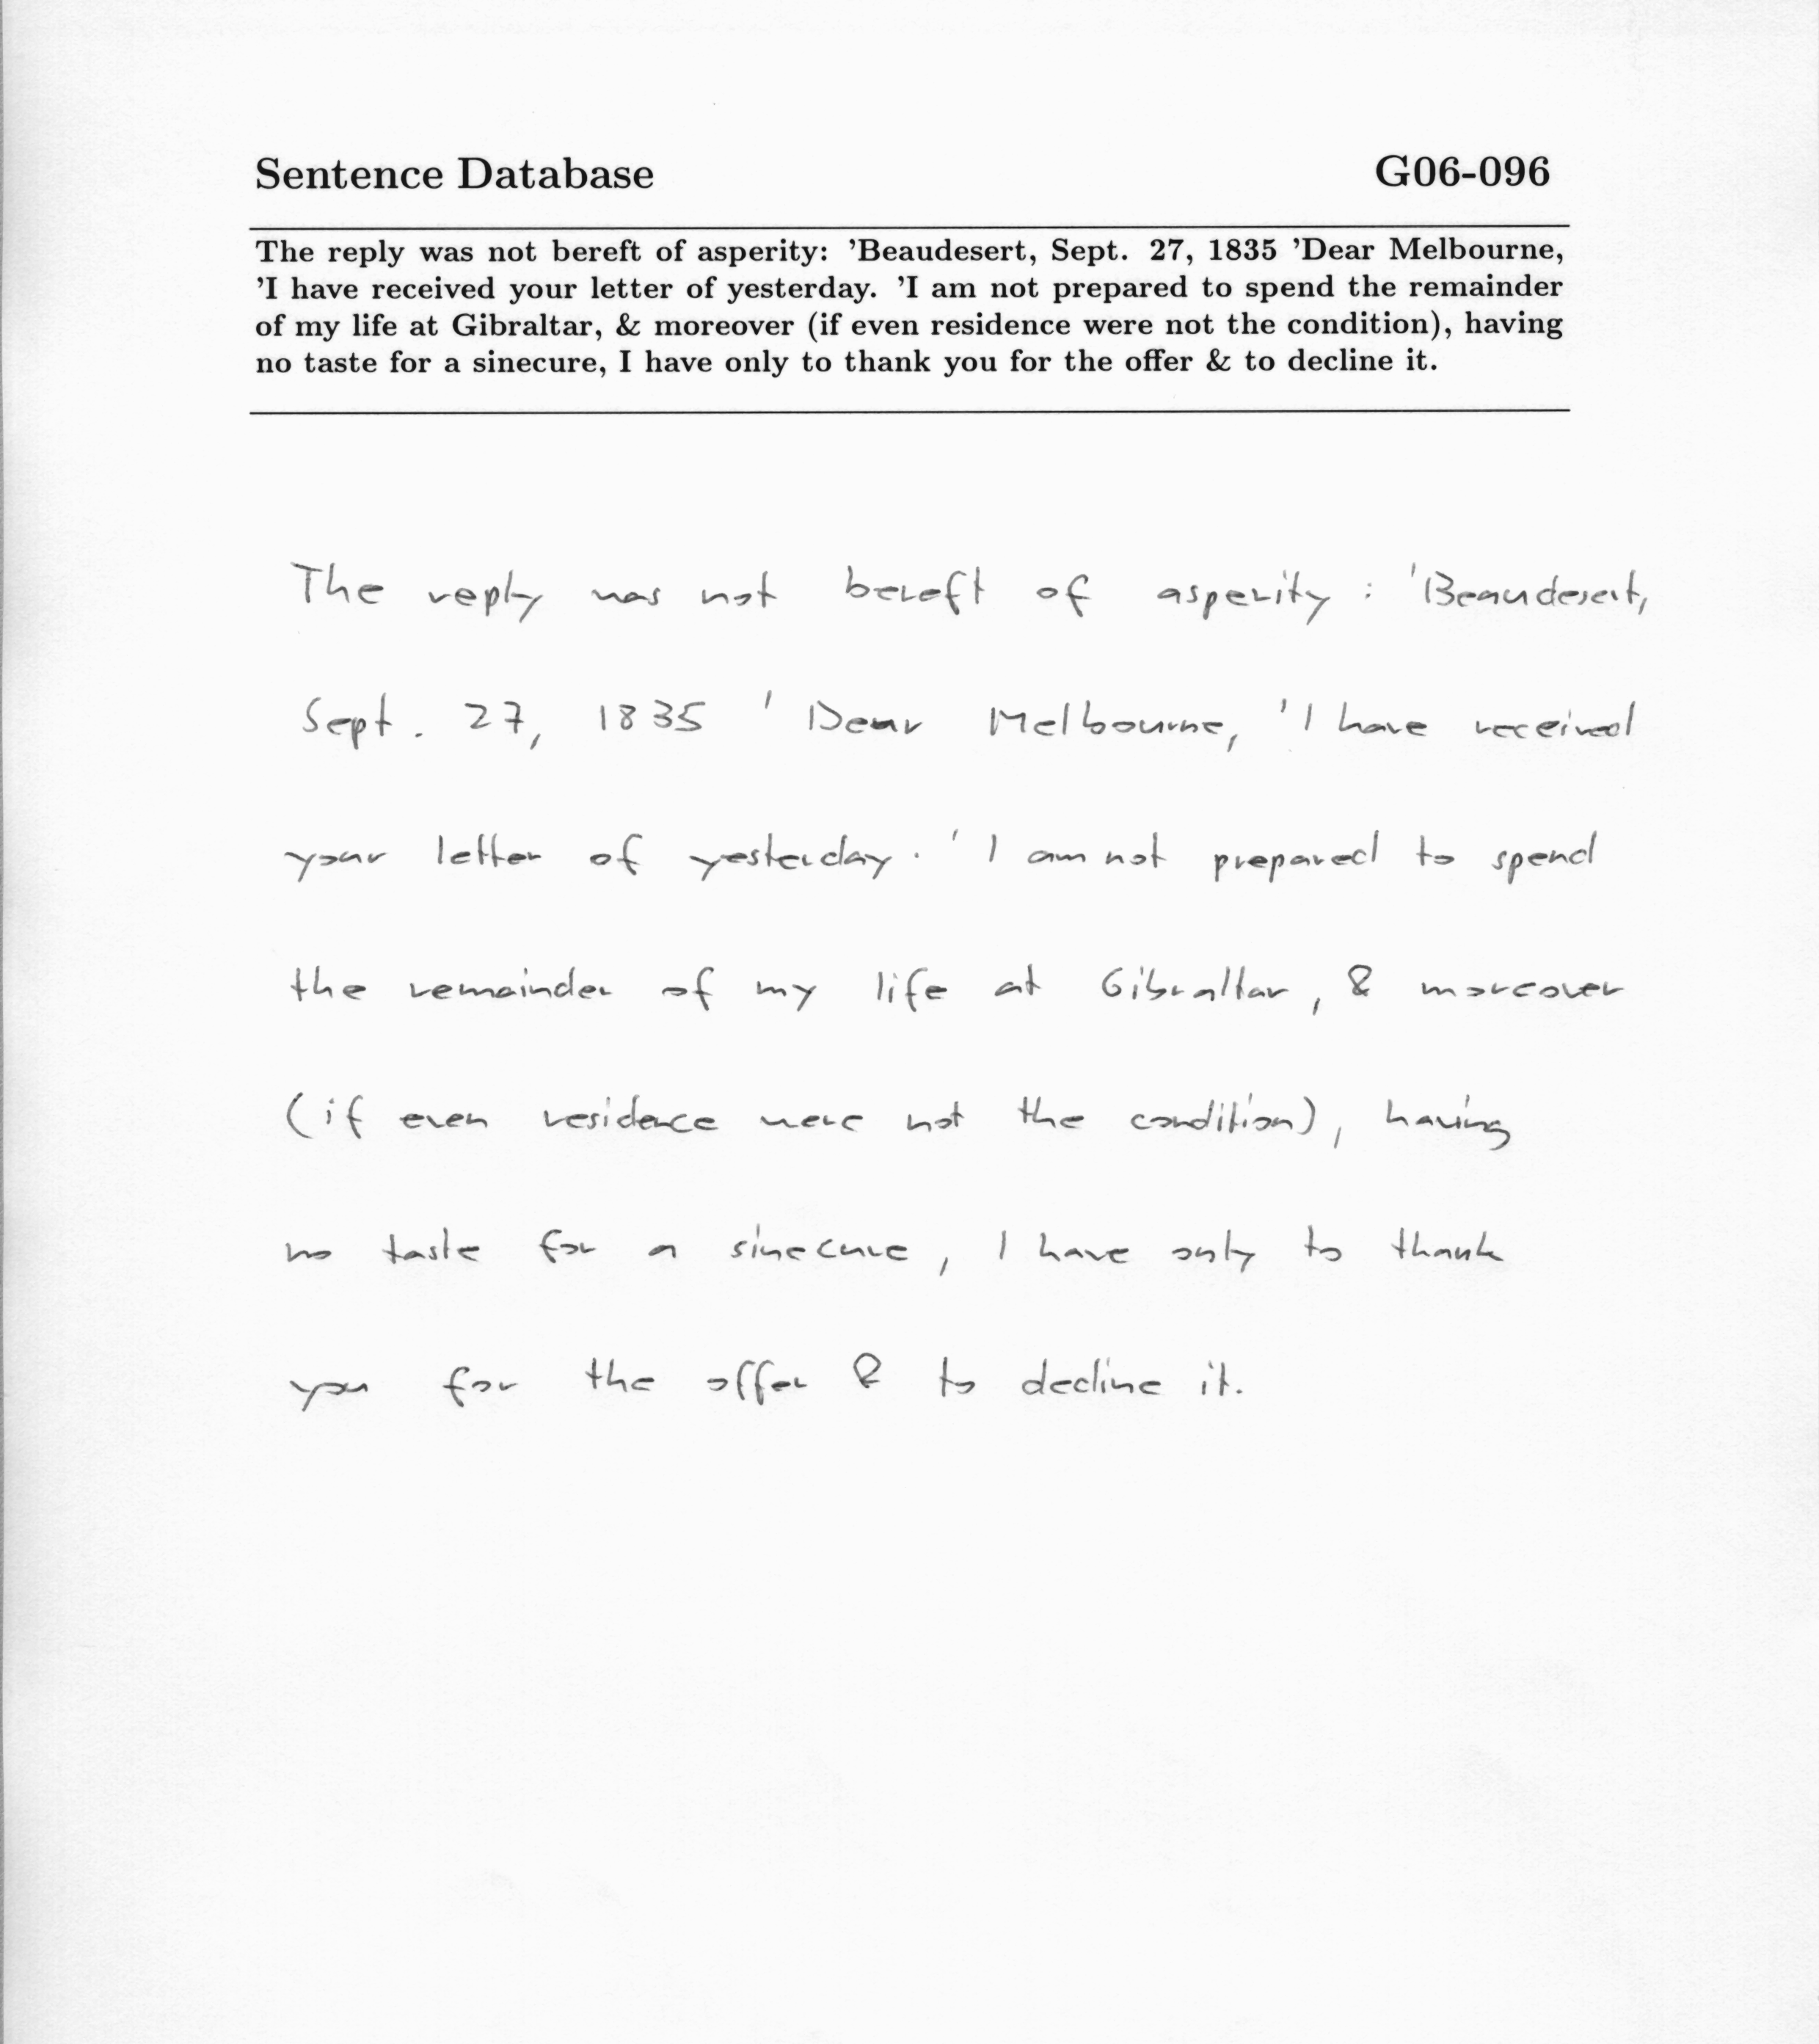 Sentence Database G06-096
The reply was not bereft of asperity: 'Beaudesert, Sept. 27, 1835 'Dear Melbourne,
'I have received your letter of yesterday. 'I am not prepared to spend the remainder
of my life at Gibraltar, & moreover (if even residence were not the condition), having
no taste for a sinecure, I have only to thank you for the offer & to decline it.
The reply was not bereft of asperity : 'Beaudesert,
Sept. 27, 1835 ' Dear Melbourne, 'I have received
your letter of yesterday. ' I am not prepared to spend
the remainder of my life at Gibraltar, & moreover
(if even residence were not the condition), having
no taste for a sinecure, I have only to thank
you for the offer & to decline it.